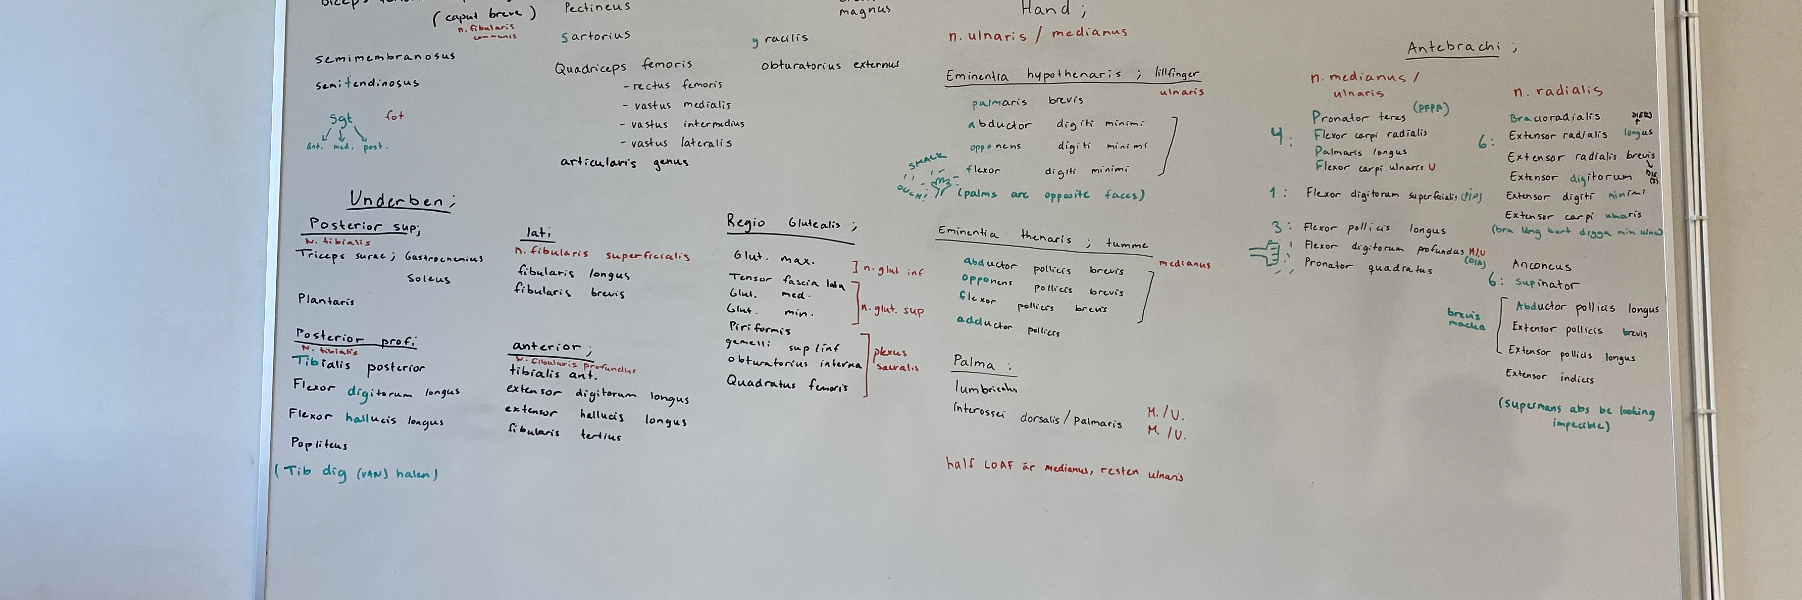 (caput breve)
n. fibularis
communis
semimembranosus
semitendinosus
Sgt fot
Ant. med. post.
Pectineus
Sartorius
Quadriceps femoris
- rectus femoris
- vastus medialis
- vastus intermedius
- vastus lateralis
articularis genus
magnus
gracilis
obturatorius externus
Underben;
Posterior sup;
N. tibialis
Triceps surae; Gastrocnemius
Soleus
Plantaris
Posterior prof;
N. tibialis
Tibialis posterior
Flexor digitorum longus
Flexor hallucis longus
Popliteus
(Tib dig (VAN) halen)
lat;
n. fibularis superficialis
fibularis longus
fibularis brevis
anterior;
N. fibularis profundus
tibialis ant.
extensor digitorum longus
extensor hallucis longus
fibularis tertius
Regio Glutealis;
Glut. max.
] n. glut inf
Tensor fascia lata
Glut. med.
Glut. min.
n. glut. sup
Piriformis
gemelli sup/inf
obturatorius interna
Quadratus femoris
plexus
sacralis
Hand;
n. ulnaris / medianus
Eminentia hypothenaris; lillfinger
ulnaris
palmaris brevis
abductor digiti minimi
opponens digiti minimi
flexor digiti minimi
SMACK
OUCH!
(palms are opposite faces)
Eminentia thenaris; tumme
medianus
abductor pollicis brevis
opponens pollicis brevis
flexor pollicis brevis
adductor pollicis
Palma;
lumbricalis
Interossei dorsalis/palmaris
M./U.
M./U.
half LOAF är medianus, resten ulnaris
Antebrachi;
n. medianus /
ulnaris
(PFPF)
4:
Pronator teres
Flexor carpi radialis
Palmaris longus
Flexor carpi ulnaris U
1: Flexor digitorum superfcialis
3: Flexor pollicis longus
Flexor digitorum profundus M/U
Pronator quadratus
n. radialis
6:
Bracioradialis
Extensor radialis longus
Extensor radialis brevis
Extensor digitorum
Extensor digiti minimi
Extensor carpi ulnaris
(bra lång kort digga min ulna)
Anconeus
6: Supinator
brevis
macka
Abductor pollicis longus
Extensor pollicis brevis
Extensor pollicis longus
Extensor indicis
(Supermans abs be looking
impecible)